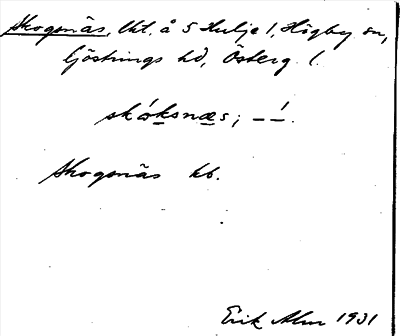 Skogsnäs, lht. å S Hulje 1, Högby sn,
Göstrings hd, Österg. l.
skóksnæs; – –́.
Skogsnäs kb.
Erik Alm 1931